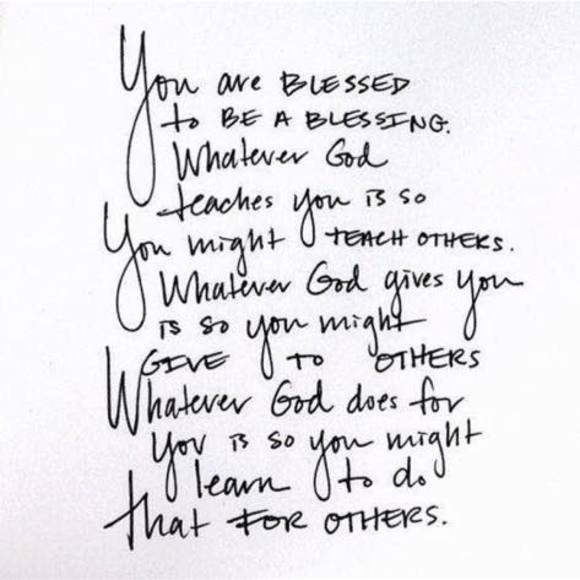 You are BLESSED
to BE A BLESSING.
Whatever God
teaches you is so
You might TEACH OTHERS.
Whatever God gives you
is so you might
GIVE TO OTHERS
Whatever God does for
you is so you might
learn to do
that FOR OTHERS.